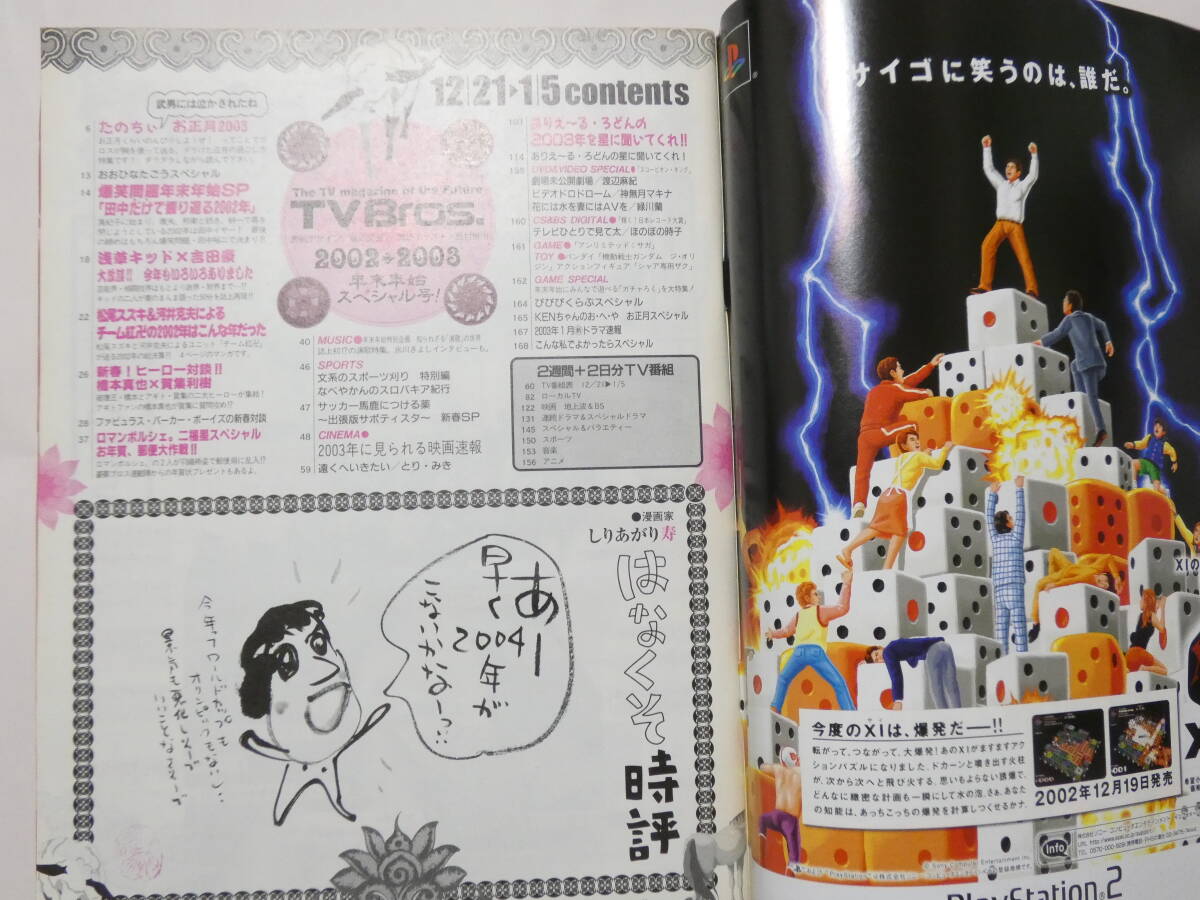 12|21▶1|5 contents
武男には泣かされたね
6 たのちぃ お正月2003
13 おおひなたごうスペシャル
14 爆笑問題年末年始SP
「田中だけで振り返る2002年」
18 浅草キッド×吉田豪
大放談!! 今年もいろいろありました
22 松尾スズキ&河井克夫による
チーム紅卍の2002年はこんな年だった
松尾スズキと河井克夫によるユニット「チーム紅卍」
が送る2002年の総決算!! 4ページのマンガです。
26 新春!ヒーロー対談!!
橋本真也×賀集利樹
28 ファビュラス・バーカー・ボーイズの新春対談
37 ロマンポルシェ。二福星スペシャル
お年賀、郵便大作戦!!
The TV magazine of the Future
TV Bros.
2002→2003
年末年始
スペシャル号!
40 MUSIC●
46 SPORTS
文系のスポーツ刈り 特別編
なべやかんのスロバキア紀行
47 サッカー馬鹿につける薬
～出張版サポティスタ～ 新春SP
48 CINEMA●
2003年に見られる映画速報
59 遠くへいきたい/とり・みき
107 ありえ～る・ろどんの
2003年を星に聞いてくれ!!
114 ありえ～る・ろどんの星に聞いてくれ!
159 DVD&VIDEO SPECIAL●「スコーピオン・キング」
劇場未公開劇場/渡辺麻紀
ビデオドロドローム/神無月マキナ
花には水を妻にはAVを/緑川蘭
160 CS&BS DIGITAL●「輝く!日本レコード大賞」
テレビひとりで見て太/ほのぼの時子
161 GAME●「アンリミテッド:サガ」
TOY●バンダイ「機動戦士ガンダム ジ・オリ
ジン」アクションフィギュア「シャア専用ザク」
162 GAME SPECIAL
年末年始にみんなで遊べる「ガチャろく」を大特集!
164 ぴぴぴくらぶスペシャル
165 KENちゃんのお・へ・や お正月スペシャル
167 2003年1月米ドラマ速報
168 こんな私でよかったらスペシャル
2週間+2日分TV番組
60 TV番組表 12/21▶1/5
82 ローカルTV
122 映画 地上波&BS
131 連続ドラマ&スペシャルドラマ
145 スペシャル&バラエティー
150 スポーツ
153 音楽
156 アニメ
●漫画家
しりあがり寿
はなくそ時評
あー
早く
2004
年が
こないかなーっ
今年ってワールドカップも
オリンピックもないし…
景気も悪化しそーで
いいことなさそーで
サイゴに笑うのは、誰だ。
今度のXIは、爆発だ──!!
転がって、つながって、大爆発!あのXIがますますアク
ションパズルになりました。ドカーンと噴き出す火柱
が、次から次へと飛び火する。思いもよらない誘爆で、
どんなに緻密な計画も一瞬にして水の泡。さぁ、あなた
の知能は、あっちこっちの爆発を計算しつくせるかナ。
2002年12月19日発売
Info
PlayStation®2